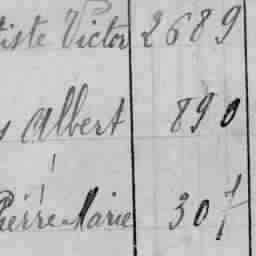 tiste Victor 2689
s Albert 890
Pierre-Marie 307